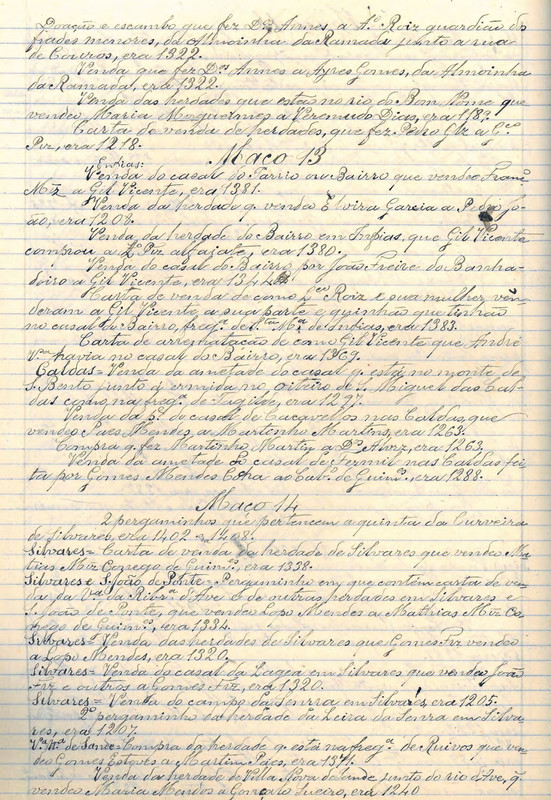 Doação e escambo que fez D.os Annes, a A.º Roiz guardião dos
frades menores, da Almoinha da Ramada junto a rua
de Couros, era 1322.
Venda que fez D.os Annes a Ayres Gomes, da Almoinha
da Ramada, era 1322.
Venda das herdades que estão no rio do Bom Nome que
vendeu Maria a Veremudo Dias, era
Carta de venda de herdades, que fez Pedro Glz a G.co
Piz, era 1218.
Maço 13
Infias: Venda do casal do Parrio ou Bairro que vendeu Fran.co
Miz a Gil Vicente, era 1381.
Venda da herdade q. vendeu Elvira Garcia a Pedro Jo-
ão, era 1208.
Venda da herdade do Bairro em Infias, que Gil Vicente
comprou a L.ço Piz alfajate, era 1380.
Venda do casal do Bairro por João Freire do Banha-
doiro a Gil Vicente, era
Carta de venda de como L.ço Roiz e sua mulher, ven-
deram a Gil Vicente, a sua parte e quinhão que tinhão
no casal do Bairro, freg.a de S.ta M.a de Infias, era 1383.
Carta de arrematação de como Gil Vicente que André
havia no casal do Bairro, era 1369.
Caldas = Venda da ametade do casal q. está no monte de
S. Bento junto á ermida no oiteiro de S. Miguel das Cal-
das como na freg.a de Tagilde, era 1297.
Venda da do casal de Cacavelos nas Caldas, que
vendeu Paes Mendes a Martinho Martins, era 1263.
Compra q. fez Martinho Martins a D.os Alvrz, era 1263
Venda da ametade do casal de Sermil nas Caldas fei-
ta por Gomes Mendes ao Cab.º de Guim.es, era 1288.
Maço 14
2 pergaminhos que pertencem a quinta da Curveira
de Silvares, era 1402 e 1408.
Silvares = Carta de venda da herdade de Silvares que vendeu Ma-
tias Miz Conego de Guim.es, era 1338.
Silvares e S. João de Ponte = Pergaminho em que contem carta de ven-
da, da V.a da Ribr.a d'Ave e de outras herdades em Silvares e
S. João de Ponte, que vendeu Lopo Mendes a Mathias Miz Co-
nego de Guim.es, era 1334.
Silvares = Venda das herdades de Silvares que Gomes Frz vendeu
a Lopo Mendes, era 1320.
Silvares = Venda do casal da Lagea em Silvares que vendeu João
Frz e outros a Gomes Frz, era 1320.
Silvares = Venda do campo da Senrra em Silvares, era 1205.
2º pergaminho da herdade da Leira da Senrra em Silva-
res, era 1207.
V.a N.a de Sande = Compra da herdade q. está na freg.a de Ruivos que ven-
deo Gomes Esteves a Martim Paes, era 1371.
Venda da herdade de Villa Nova de Sande junto do rio d'Ave, q.
vendeu Maria Mendes a Gonçalo Sueiro, era 1240